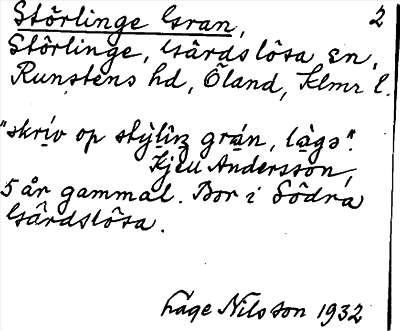 Störlinge Gran, 2
Störlinge, Gårdslösa sn,
Runstens hd, Öland, Klmr l.
"skrìv op stý̀liŋ grán, làgə".
Kjell Andersson,
5 år gammal. Bor i Södra
Gårdslösa.
Låge Nilsson 1932